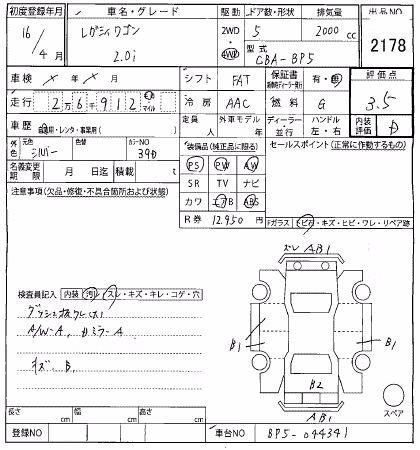 初度登録年月 車名・グレード 駆動 ドア数・形状 排気量 出品NO
16/4月 レガシィワゴン 2.0i 2WD 4WD 5 2000 cc 2178
型式 CBA-BP5
車検 × 年 × 月 シフト FAT 保証書 有・無 評価点
走行 2万6千912 km マイル 冷房 AAC 燃料 G 3.5
車歴 自家用・レンタ・事業用( ) 定員 人 外車モデル 年 ディーラー 並行 ハンドル 左・右 内装評価 D
外色 元色 シルバー 色替 カラーNO 39D 装備品(純正品に限る) セールスポイント(正常に作動するもの)
PS PW AW
名義変更期限 月 日迄 積載 t SR TV ナビ
注意事項(欠品・修復・不具合箇所および状態) カワ エアB ABS
R券 12,950 円 Fガラス トビ石・キズ・ヒビ・ワレ・リペア跡
ズレ AB1
検査員記入 内装 汚レ・スレ・キズ・キレ・コゲ・穴
A/W-A, カミラ-A
B1 B1
キズ、B、
B2
AB1 スペア
長さ cm 幅 cm 高さ cm
登録NO 車台NO BP5-044341